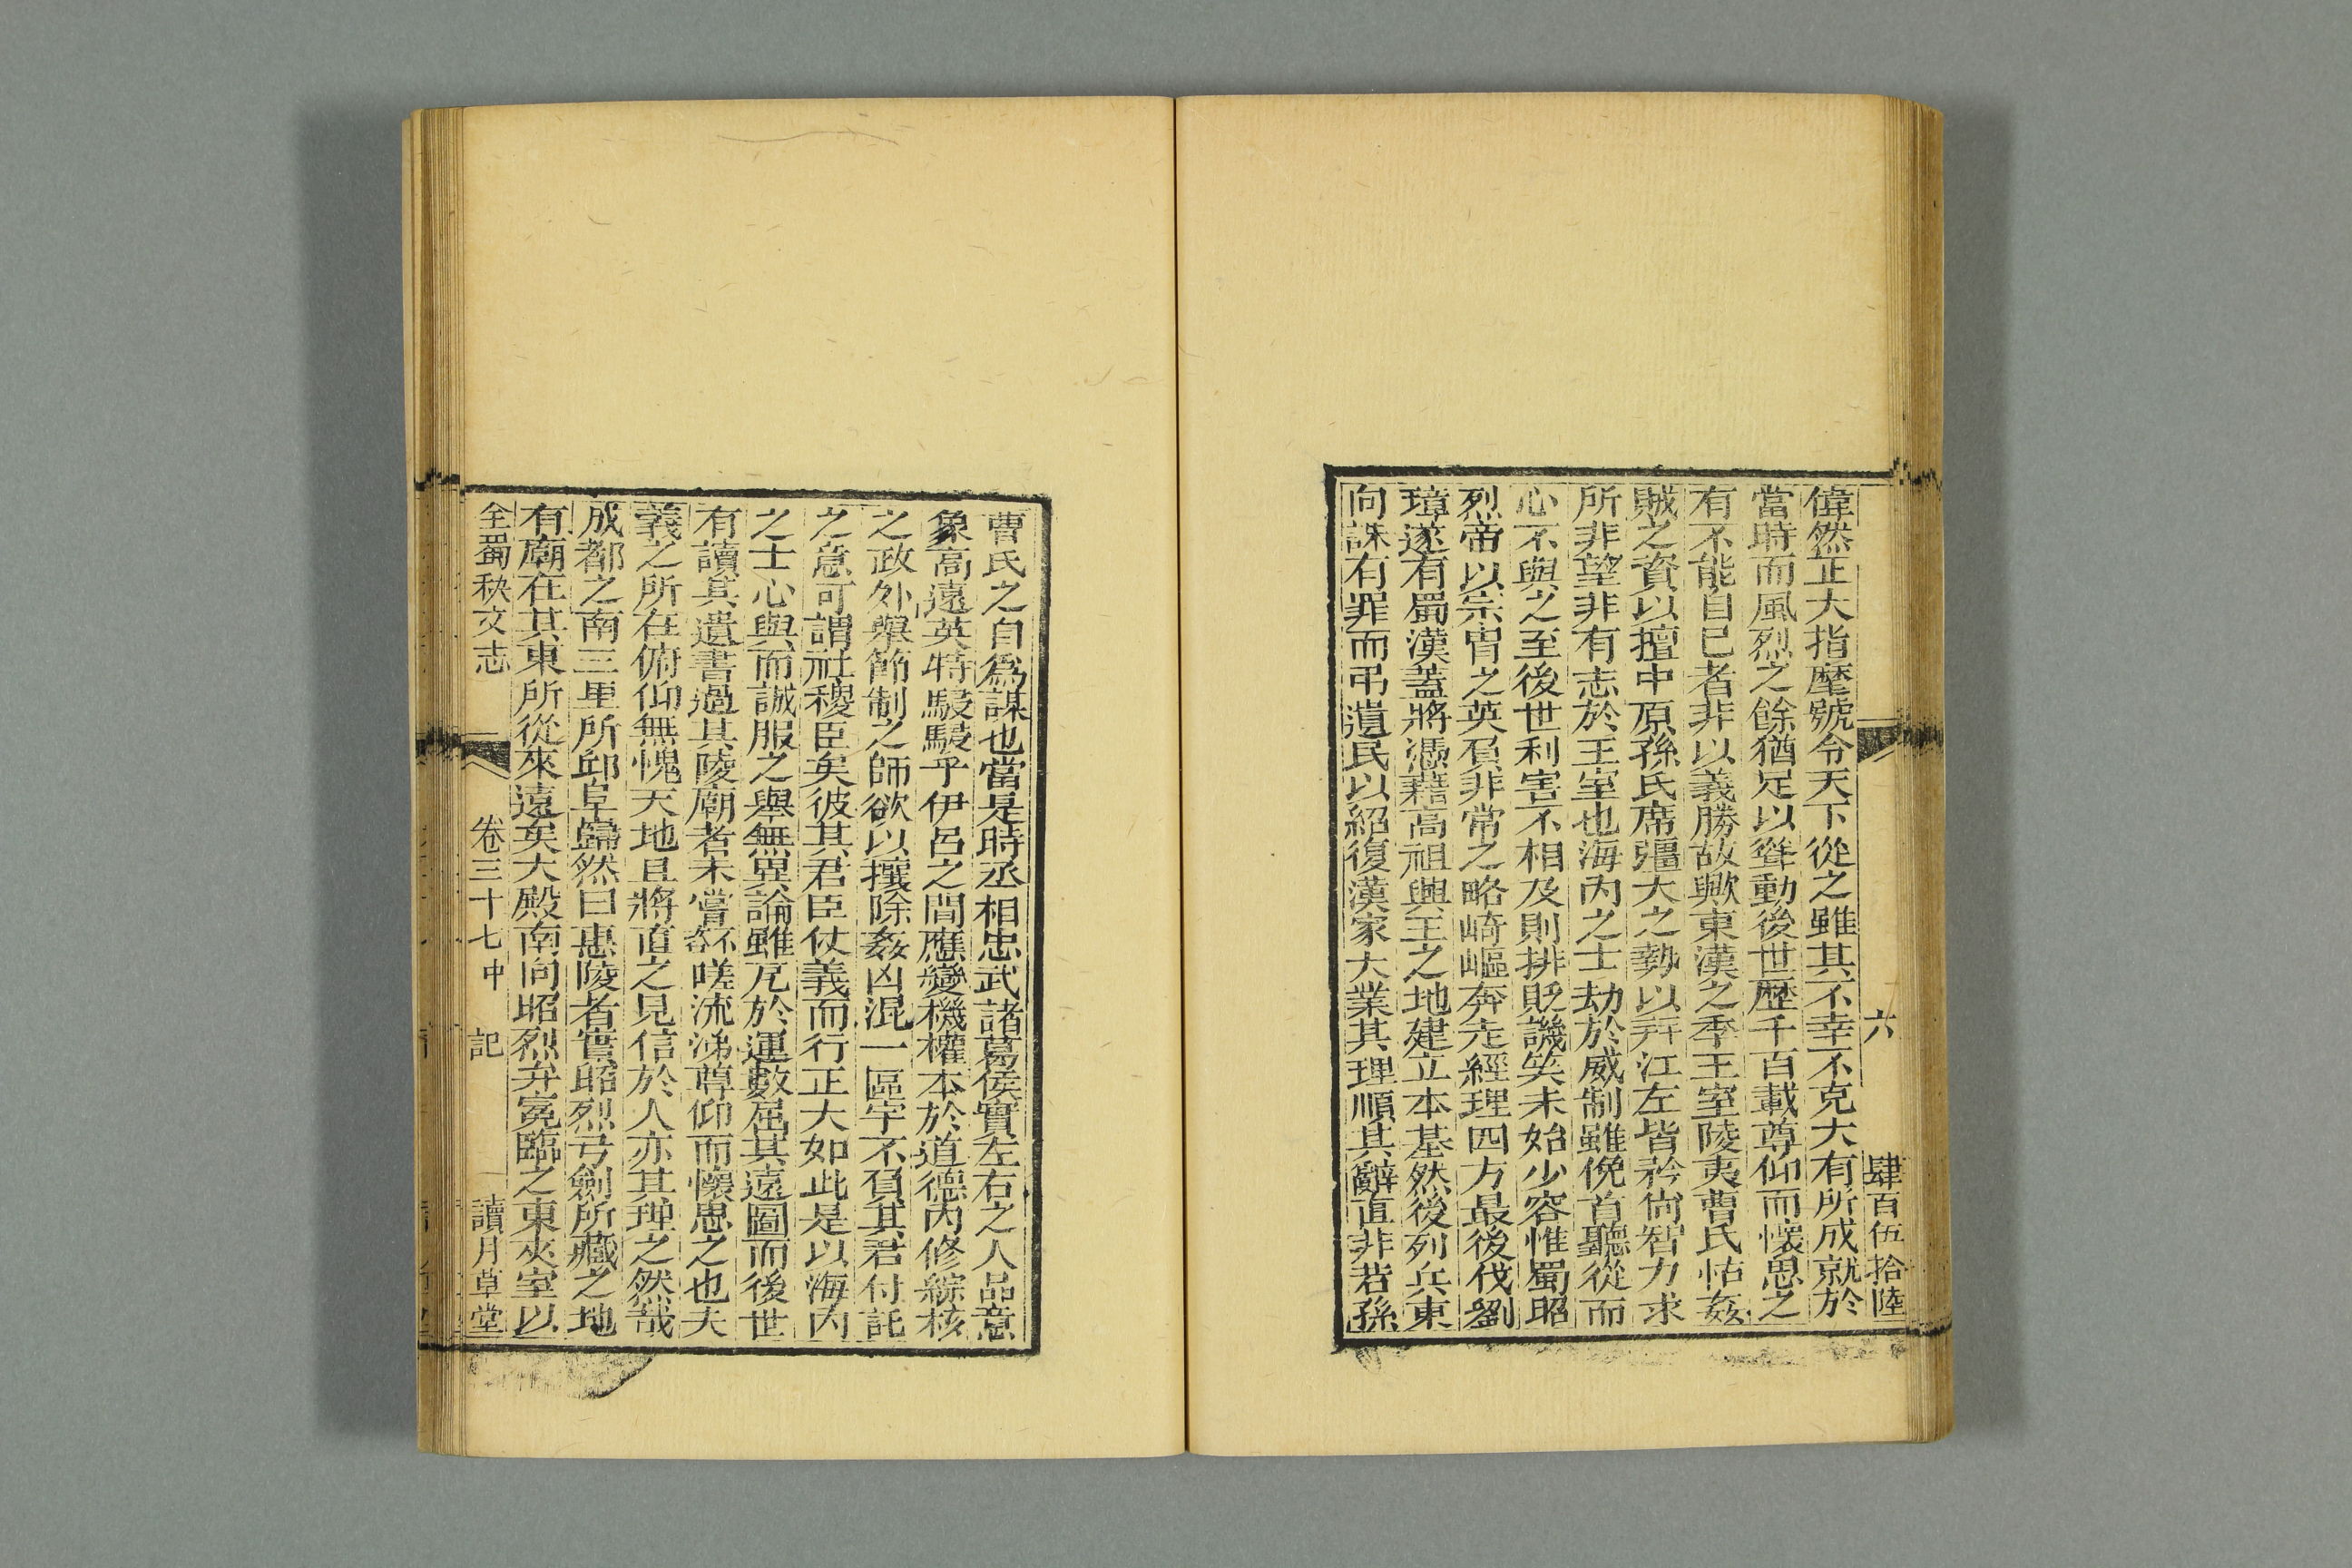 六
肆百伍拾陸
偉然正大指麾號令天下從之雖其不幸不克大有所成就於
當時而風烈之餘猶足以聳動後世歷千百載尊仰而懷思之
有不能自已者非以義勝故歟東漢之季王室陵夷曹氏怙姦
賊之資以擅中原孫氏席彊大之勢以弄江左皆矜尙智力求
所非望非有志於王室也海內之士劫於威制雖俛首聽從而
心不與之至後世利害不相及則排貶譏笑未始少容惟蜀昭
烈帝以宗冑之英負非常之略崎嶇奔走經理四方最後伐劉
璋遂有蜀漢蓋將憑藉高祖興王之地建立本基然後列兵東
向誅有罪而弔遺民以紹復漢家大業其理順其辭直非若孫
曹氏之自爲謀也當是時丞相忠武諸葛侯實左右之人品意
象高遠英特駸駸乎伊呂之間應變機權本於道德內修綜核
之政外舉節制之師欲以攘除姦凶混一區宇不負其君付託
之意可謂社稷臣矣彼其君臣仗義而行正大如此是以海內
之士心與而誠服之舉無異論雖厄於運數屈其遠圖而後世
有讀其遺書過其陵廟者未嘗不咨嗟流涕尊仰而懷思之也夫
義之所在俯仰無愧天地且將直之見信於人亦其理之然哉
成都之南三里所邱阜巋然曰惠陵者實昭烈弓劍所藏之地
有廟在其東所從來遠矣大殿南向昭烈弁冕臨之東夾室以
全蜀秇文志 卷三十七中 記 讀月草堂